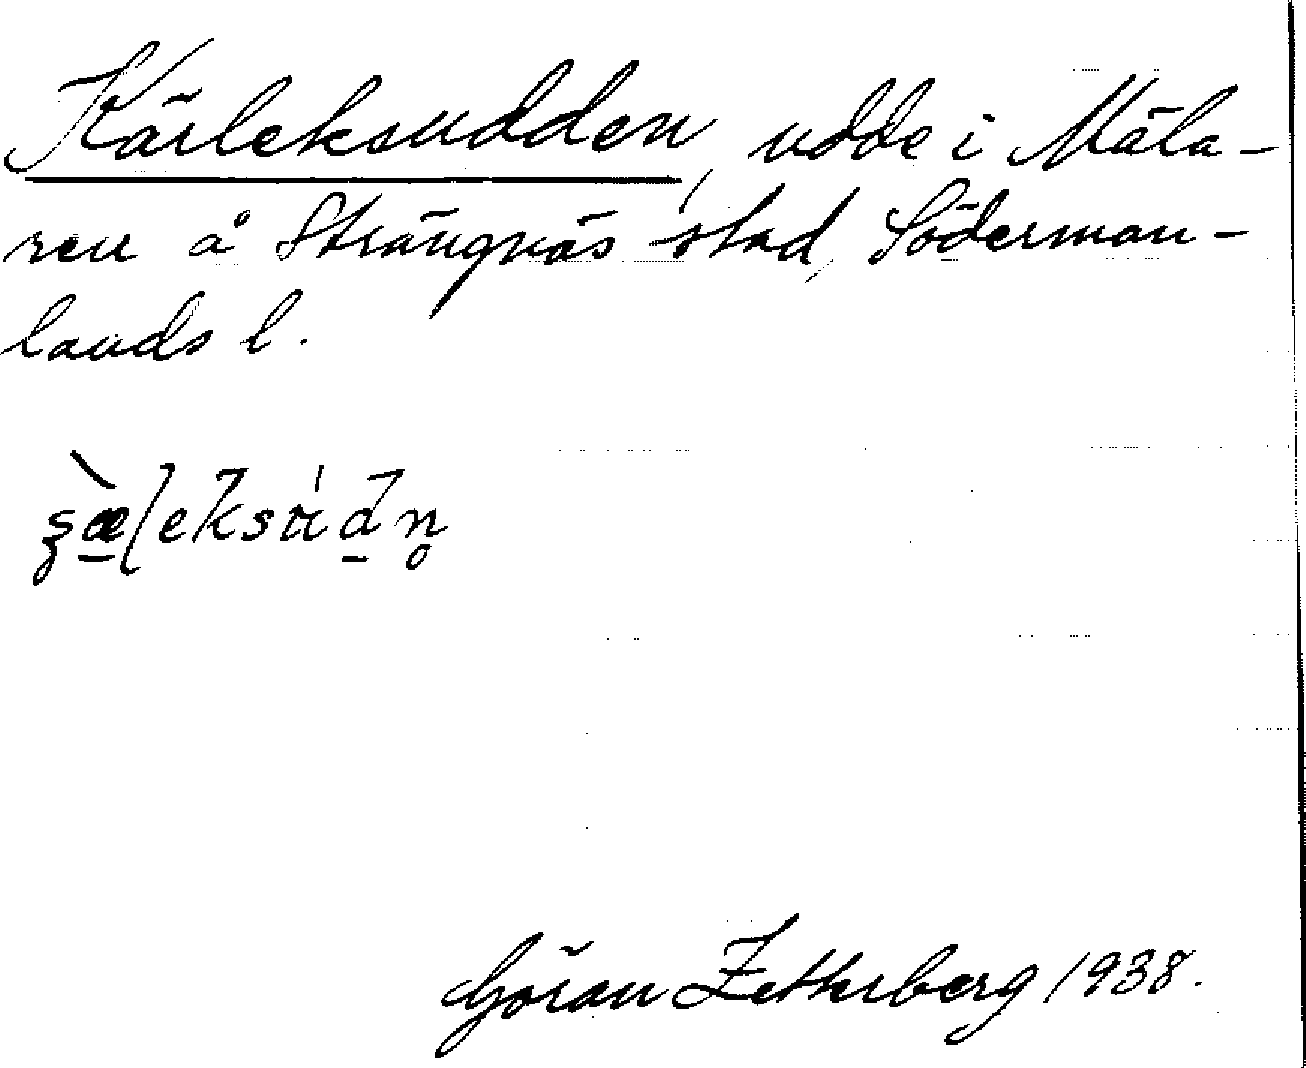 Kärleksudden, udde i Mäla-
ren å Strängnäs stad, Söderman-
lands l.
Göran Zetterberg 1938.